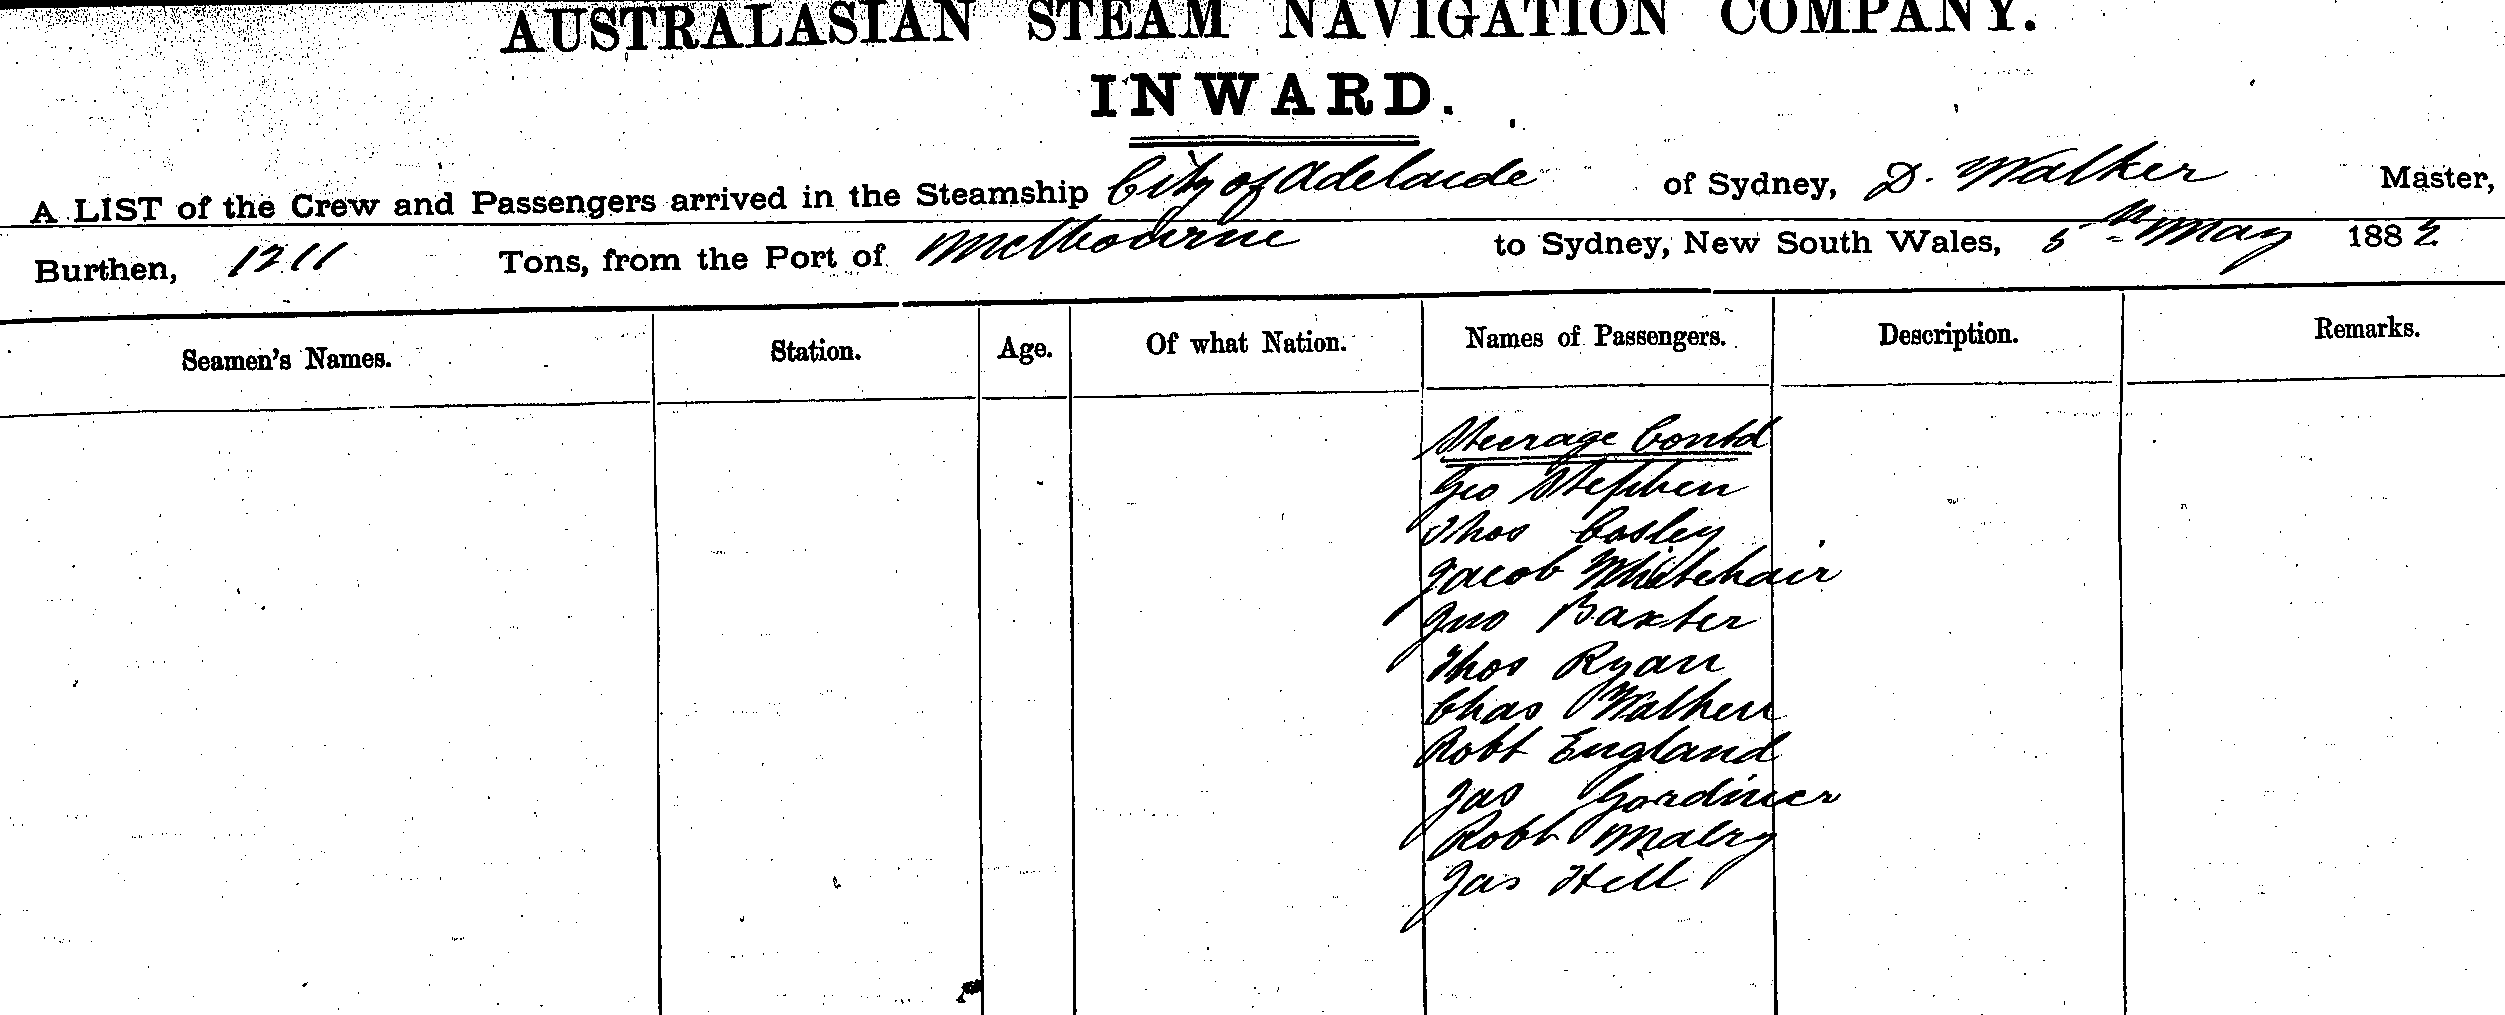 AUSTRALASIAN STEAM NAVIGATION COMPANY.
INWARD.
A LIST of the Crew and Passengers arrived in the Steamship City of Adelaide of Sydney, D. Walker Master,
Burthen, 1211 Tons, from the Port of Melbourne to Sydney, New South Wales, 5th May 1882
Seamen's Names. Station. Age. Of what Nation. Names of Passengers. Description. Remarks.
Steerage Contd
Geo Stephen
Thos Cosley
Jacob Whitehair
Jno Baxter
Thos Ryan
Chas
Robt England
Jas Gordiner
Robt
Jas Hill